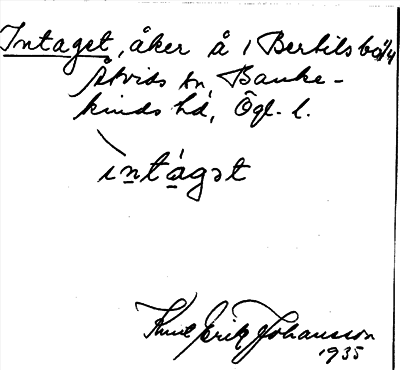 Intaget, åker å 1 Bertilsbo 1/4
Åtvids sn, Banke-
kinds hd, Ögl. l.
ìntágət
Knut Erik Johansson
1935